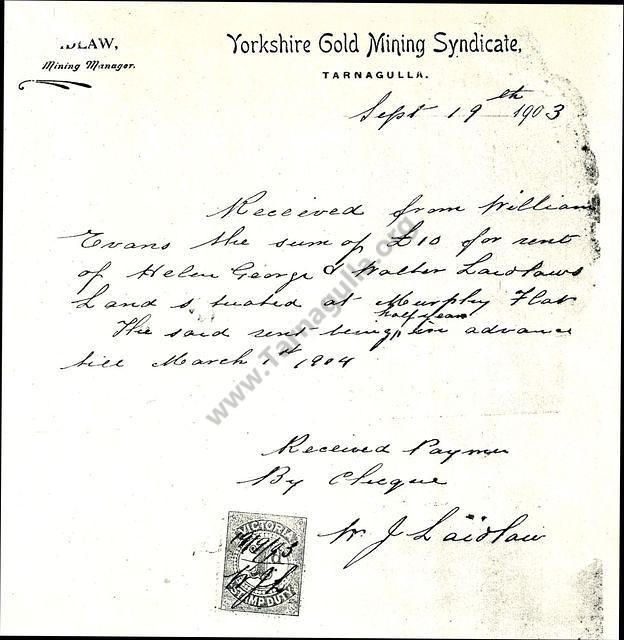 IDLAW,
Mining Manager.
Yorkshire Gold Mining Syndicate,
TARNAGULLA.
Sept 19th 1903
Received from William
Evans the sum of £10 for rent
of Helen George & Walter Laidlaws
Land situated at Murphy Flat
half year
The said rent being in advance
till March 1st 1904
Received Paymen
By Cheque
W J Laidlaw
VICTORIA
19/9/03
WJL
STAMP DUTY
www.Tarnagulla.org